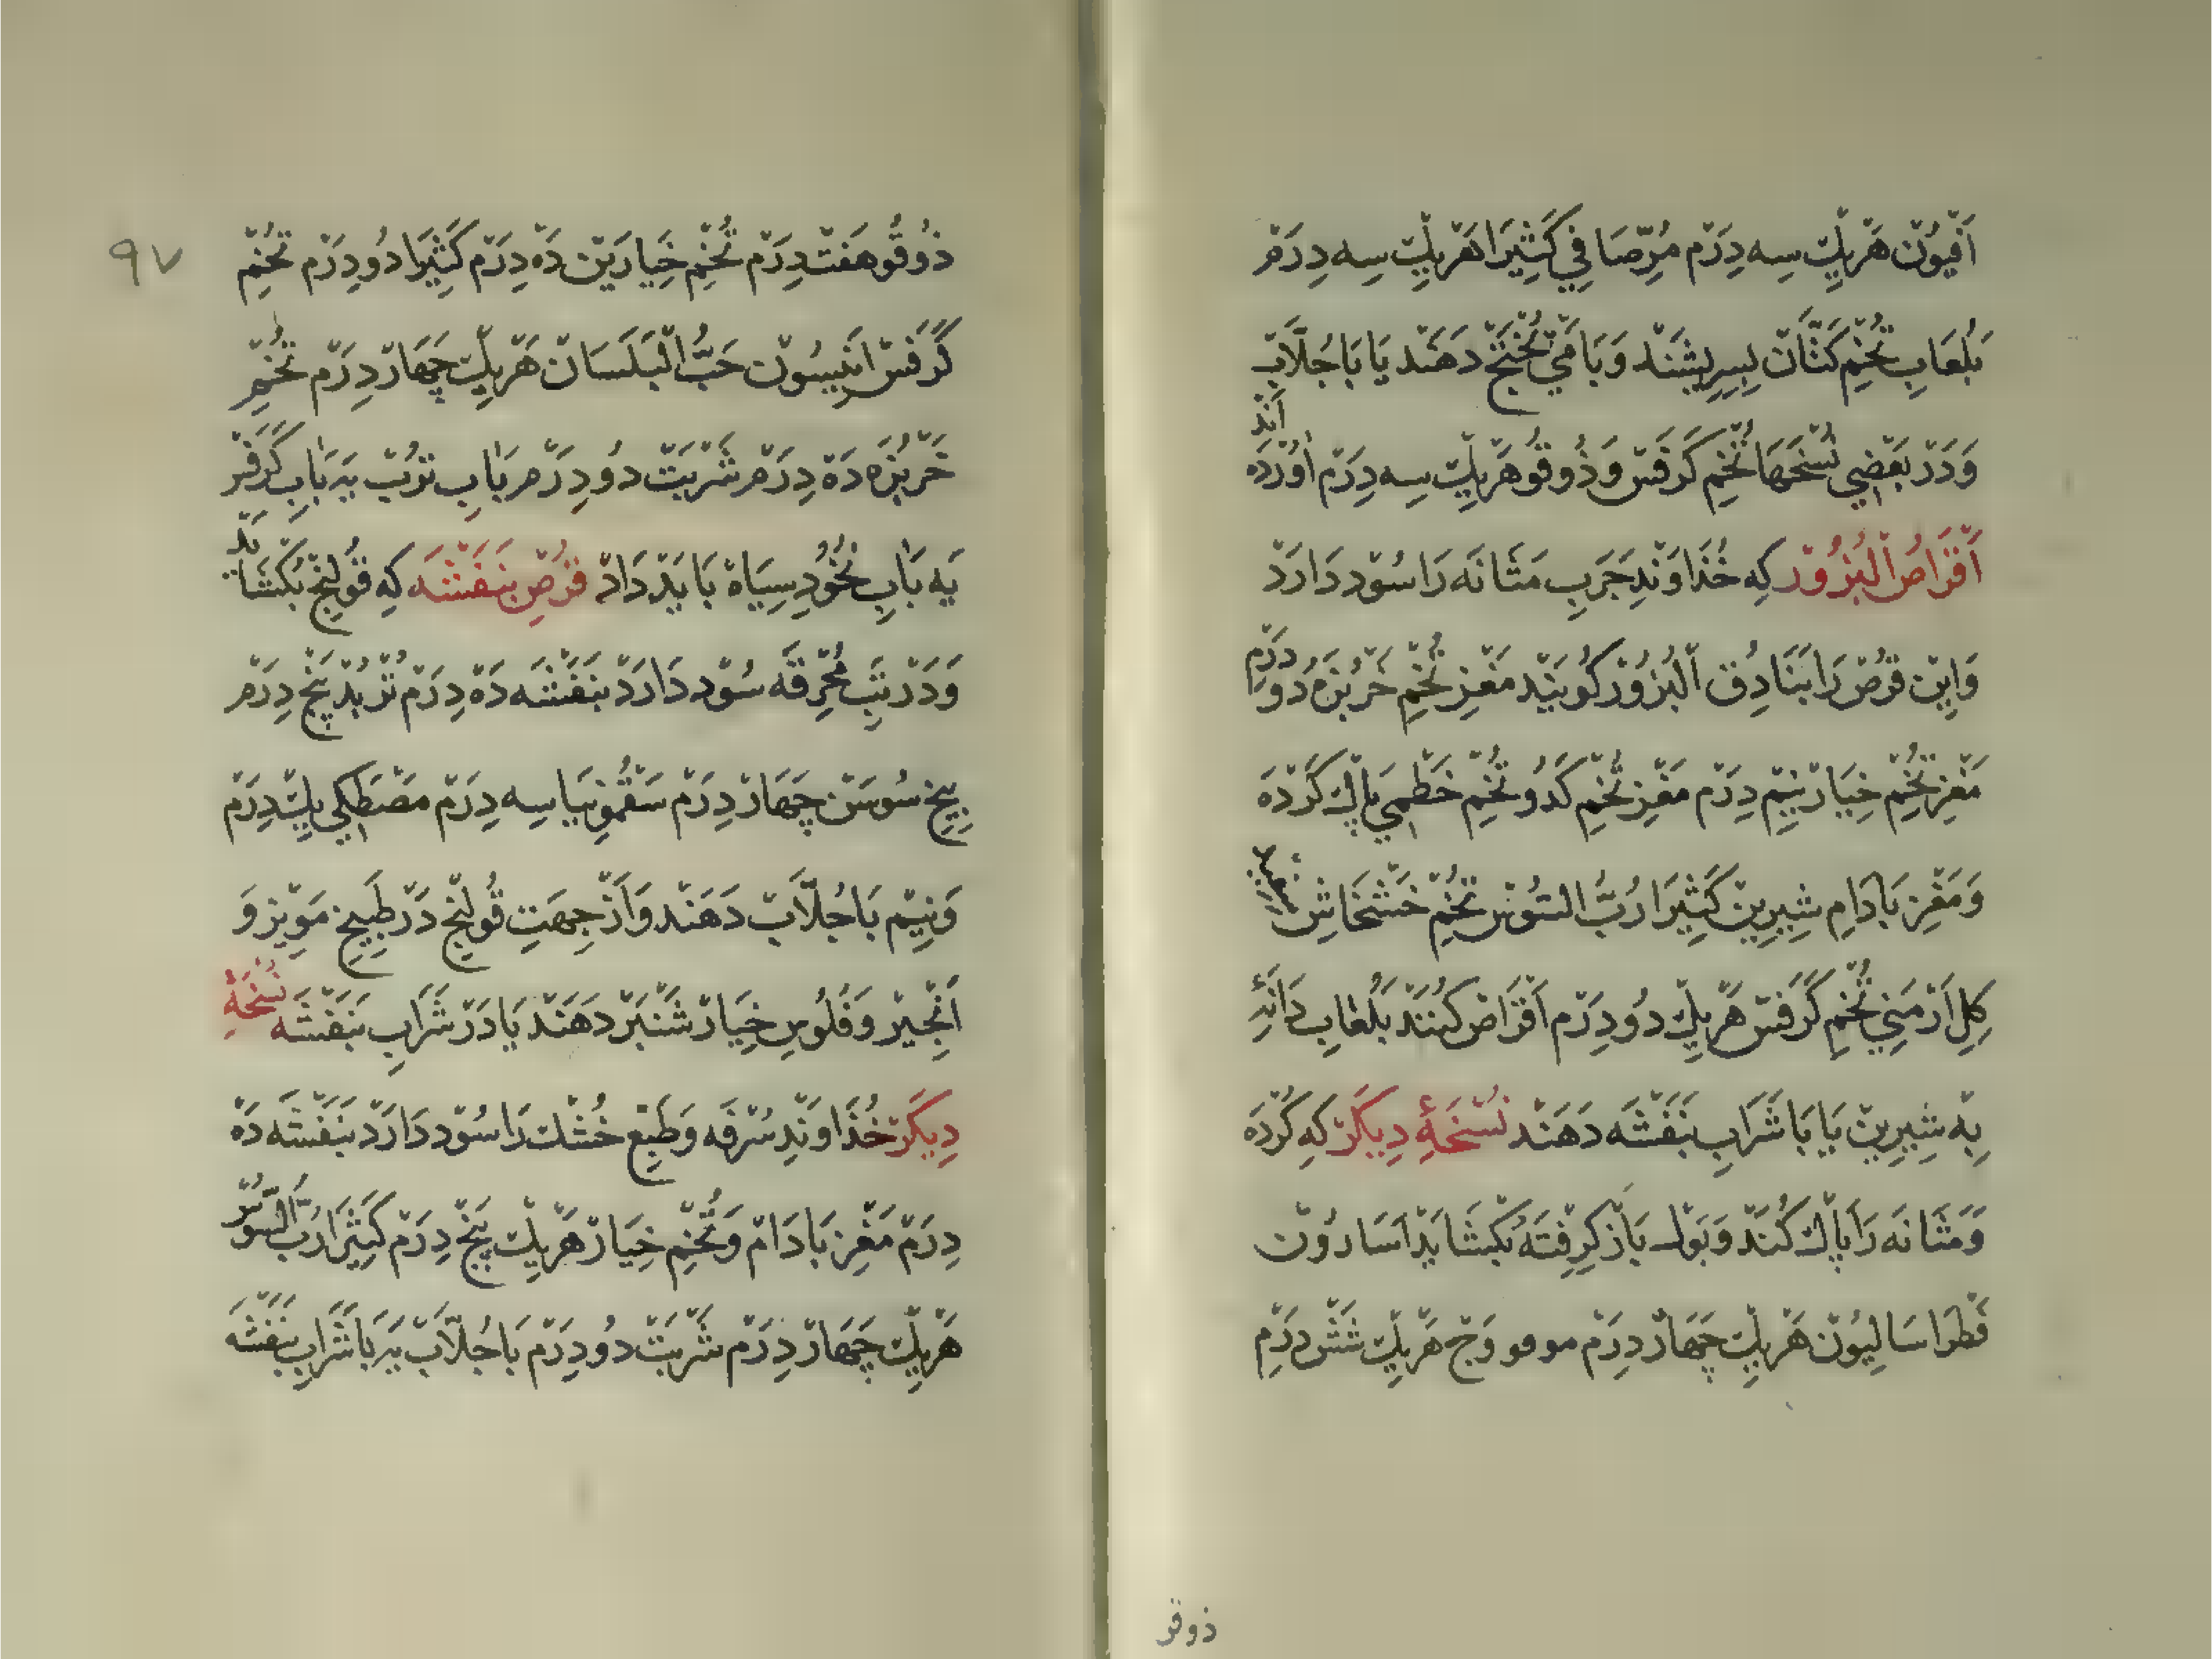 اَفْيُوْن هَرْيِكْ سِه دِرَمْ مُرِّ صَافِي كَثِيْرَا هَرْيِكْ سِه دِرَم
بَلُعَابِ تُخْمِ كَتَّانْ بِسِرِيْشَنْد وَ بَا مَيْ پُخْتَجْ دَهَنْد يَا بَا جُلَّابْ
وَ دَرْ بَعْضِي نُسْخَهَا تُخْمِ كَرَفْسْ وَ ذُوقُو هَرْيِكْ سِه دِرَمْ اٰوُرْدَه اَنْد
اَقْرَاصُ اَلْبُزُوْرْ كِه خُذَاوَنْدِ جَرَبِ مَثَانَه رَا سُوْد دَارَدْ
وَ اِيْن قُرْصْ رَا بَنَادِقُ اَلْبُزُوْرْ كُويَنْد مَغْزِ تُخْمِ خَرْبُزَه دُو دَرَمْ
مَغْزِ تُخْمِ خِيَارْ نِيْمْ دِرَمْ مَغْزِ تُخْمِ كَدُو تُخْمِ خَطْمِي پَاكْ كَرْدَه
وَ مَغْزِ بَادَامِ شِيرِيْنْ كَثِيْرَا رُبُّ السُّوْسْ تُخْمِ خَشْخَاشِ سفيد
كِلِ اَرْمَنِي تُخْمِ كَرَفْسْ هَرْيِكْ دُو دِرَمْ اَقْرَاصْ كُنَنْد بَلُعَابِ دَانَهٔ
بِهْ شِيرِيْنْ يَا بَا شَرَابِ بَنَفْشَه دَهَنْد نُسْخَهٔ دِيكَرْ كِه كُرْدَه
وَ مَثَانَه رَا پَاكْ كُنَدْ وَ بَوْل بَازْ كِرِفْتَه بُكْشَايَدْ اَسَارُوْنْ
فَطْرَاسَالِيُوْنْ هَرْيِكْ چَهَارْ دِرَمْ مو فو وَجْ هَرْيِكْ شَشْ دِرَمْ
ذوقو
٩٧
ذُوقُو هَفْتْ دِرَمْ تُخْمِ خِيَارَيْنْ دَهْ دِرَمْ كَثِيْرَا دُو دِرَمْ تُخْمِ
كَرَفْسْ اَنِيسُوْن حَبُّ الْبَلَسَانْ هَرْيِكْ چَهَارْ دِرَمْ تُخْمِ
خَرْبُزَه دَهْ دِرَمْ شَرْبَتْ دُو دِرَمْ بَابِ تُرُبْ يَه بَابِ كَرَفْس
يَه بَابِ نُخُودِ سِيَاهْ بَايَدْ دَادْ قُرْصِ بَنَفْشَه كِه قُولَنْجْ بَكْشَايَدْ
وَ دَرْ تَبِ مُحْرِقَه سُوْد دَارَدْ بَنَفْشَه دَهْ دِرَمْ تُرْبُدْ پَنْجْ دِرَمْ
بِيخِ سُوسَنْ چَهَارْ دِرَمْ سَقَمُونِيَا سِه دِرَمْ مَصْطَكِي يِكْ دِرَمْ
وَ نِيْم بَا جُلَّابْ دَهَنْد وَ اَزْ جِهَتِ قُولَنْجْ دَرْ طَبِيخِ مَوِيز وَ
اَنْجِيْر وَ فُلُوسِ خِيَارْ شَنْبَرْ دَهَنْد يَا دَرْ شَرَابِ بَنَفْشَه نُسْخَهٔ
دِيكَرْ خُذَاوَنْدِ سُرْفَه وَ طَبْعِ خُشْكْ رَا سُوْد دَارَدْ بَنَفْشَه دَهْ
دِرَمْ مَغْزِ بَادَامْ وَ تُخْمِ خِيَارْ هَرْيِكْ پَنْجْ دِرَمْ كَثِيْرَا رُبُّ السُّوْسْ
هَرْيِكْ چَهَارْ دِرَمْ شَرْبَتْ دُو دِرَمْ بَا جُلَّابْ يَه بَا شَرَابِ بَنَفْشَه